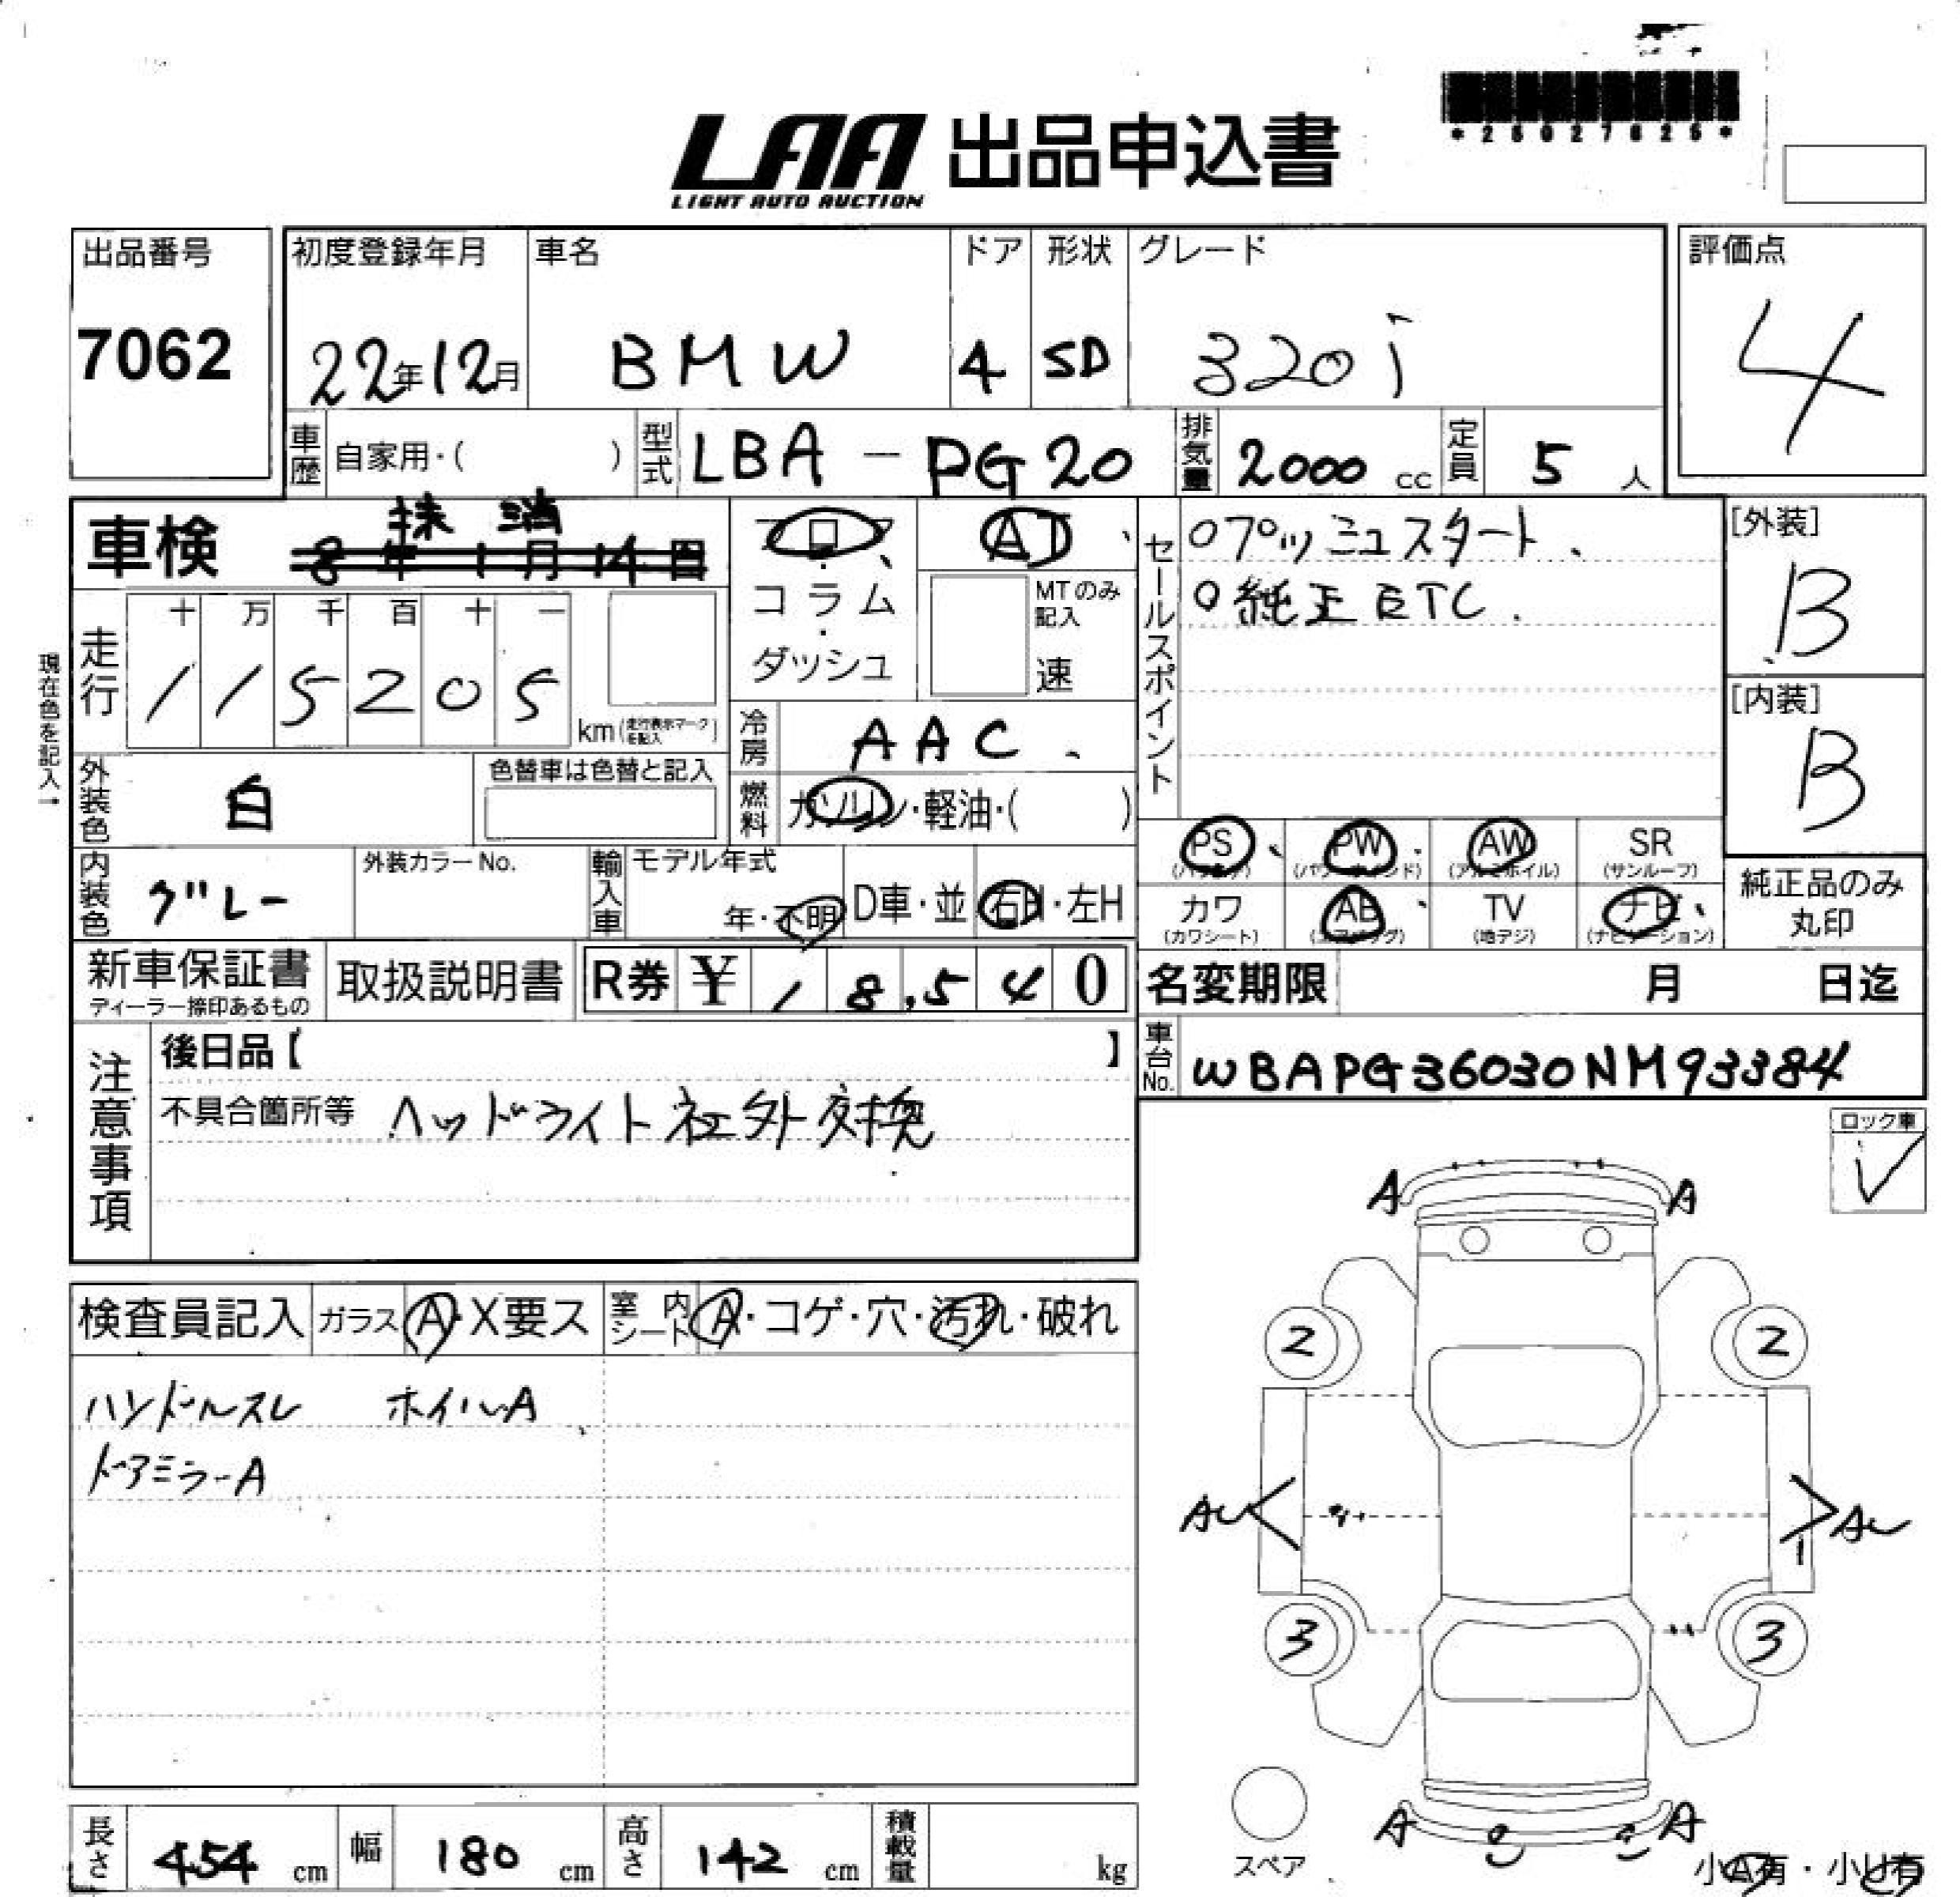 LAA 出品申込書
LIGHT AUTO AUCTION
出品番号
7062
初度登録年月
22年12月
車名
BMW
ドア
4
形状
SD
グレード
320i
評価点
4
車歴 自家用・( )
型式 LBA-PG20
排気量 2000 cc
定員 5 人
車検 抹消
8年1月14日
走行
十 万 千 百 十 一
1 1 5 2 0 5 km (走行表示マークを記入)
現在色を記入→
外装色 白
色替車は色替と記入
内装色 グレー
外装カラーNo.
フロア・
コラム・
ダッシュ
AT
MTのみ記入
速
冷房 AAC
燃料 ガソリン・軽油・( )
輸入車 モデル年式
年・不明
D車・並
右H・左H
セールスポイント
○プッシュスタート、
○純正ETC.
[外装]
B
[内装]
B
PS (パワステ)
PW (パワーウィンド)
AW (アルミホイル)
SR (サンルーフ)
カワ (カワシート)
AB (エアバッグ)
TV (地デジ)
ナビ (ナビゲーション)
純正品のみ
丸印
新車保証書
ディーラー捺印あるもの
取扱説明書
R券 ¥ 18,540
名変期限 月 日迄
車台No. WBAPG36030NM93384
注意事項
後日品【 】
不具合箇所等 ヘッドライト社外交換
ロック車
✓
検査員記入 ガラス A・X要ス
室内シート A・コゲ・穴・汚れ・破れ
ハンドルスレ ホイルA
ドアミラーA
A A
2 2
AU AU
3 3
A A
スペア
小A有・小U有
長さ 454 cm
幅 180 cm
高さ 142 cm
積載量 kg